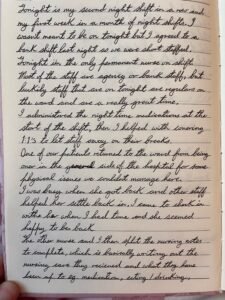 Tonight is my second night shift in a row and
my first week in a month of night shifts. I
wasn't meant to be on tonight but I agreed to a
bank shift last night as we were short staffed.
Tonight im the only permanent nurse on shift.
Most of the staff are agency or bank staff, but
luckily staff that are on tonight are regulars on
the ward and are a really great time.
I administered the night time medications at the
start of the shift, then I helped with covering
1:1s to let staff away on their breaks
One of our patients returned to the ward from being
over in the general side of the hospital for some
physical issues we couldn't manage here.
I was busy when she got back and other staff
helped her settle back in, I came to check in
with her when I had time and she seemed
happy to be back
The other nurse and I then split the nursing notes
to complete, which is basically writing out the
nursing care they recieved and what they have
been up to eg. medication, eating/drinking,